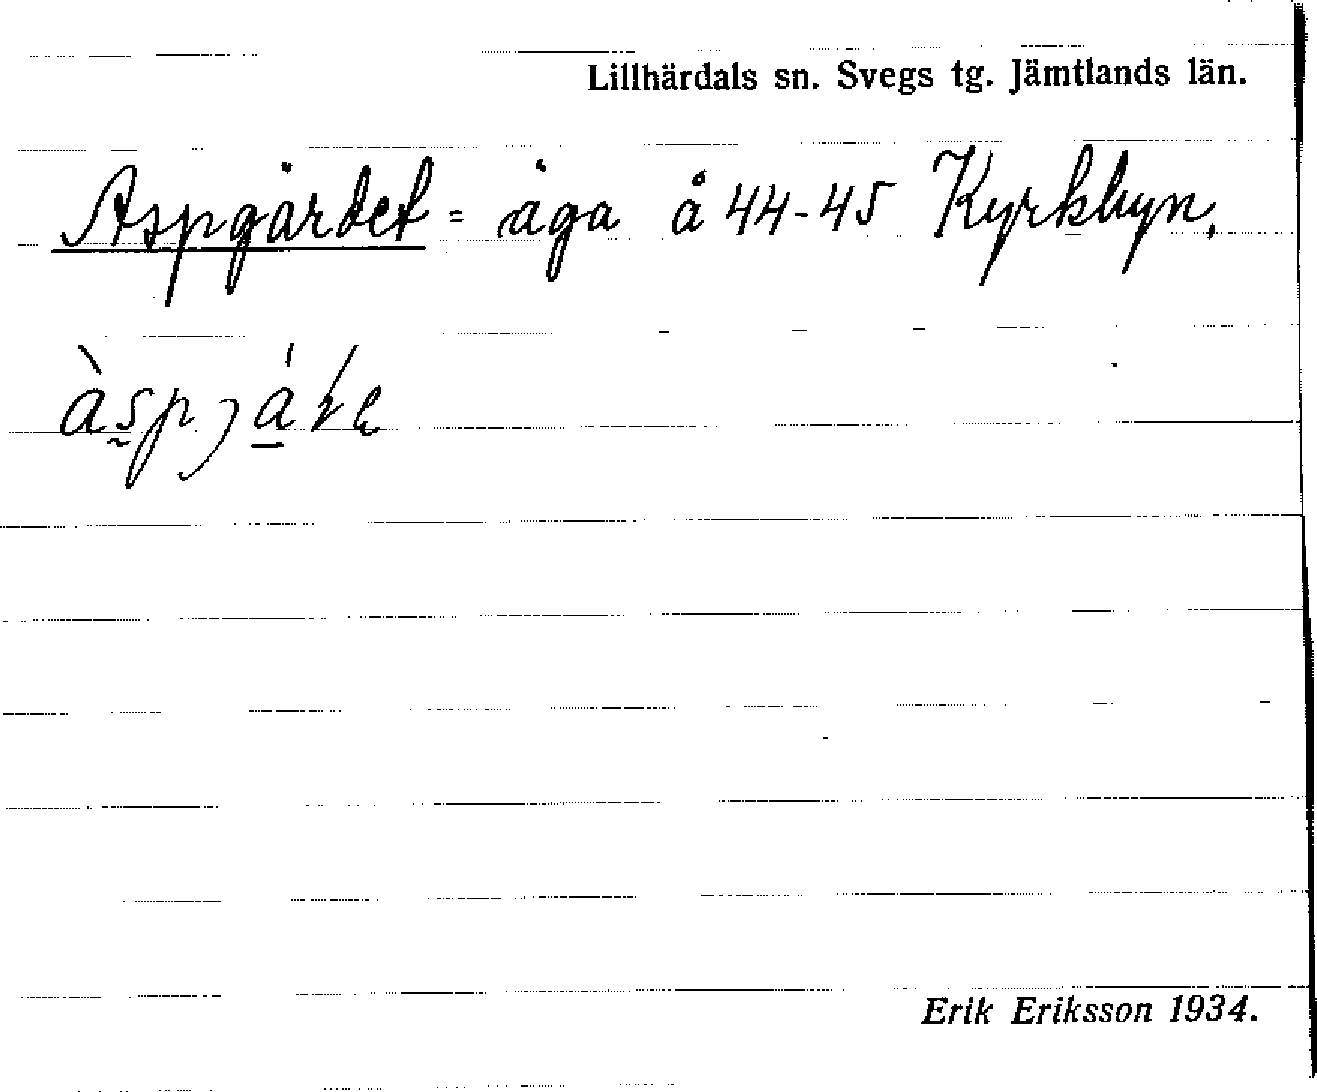 Lillhärdals sn. Svegs tg. Jämtlands län.
Aspgärdet = äga å 44-45 Kyrkbyn.
Erik Eriksson 1934.